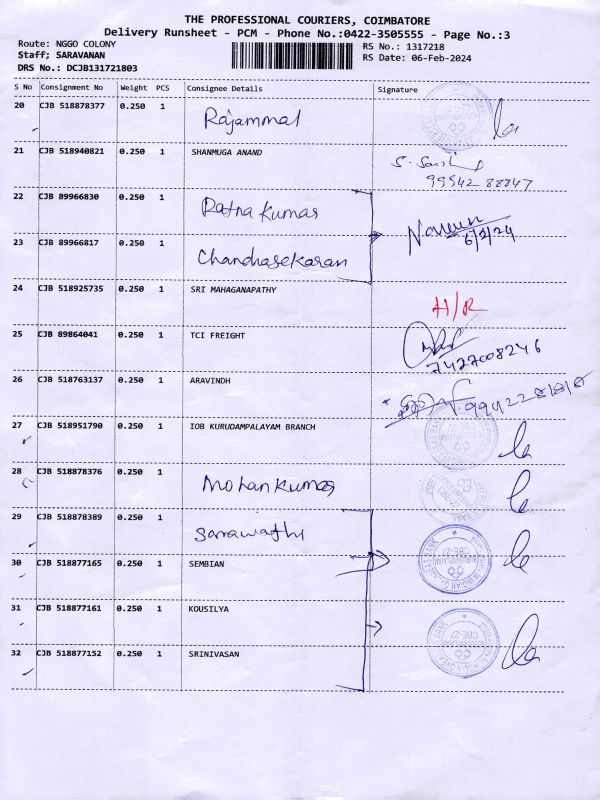 THE PROFESSIONAL COURIERS, COIMBATORE
Delivery Runsheet - PCM - Phone No.:0422-3505555 - Page No.:3
Route: NGGO COLONY
RS No.: 1317218
Staff; SARAVANAN
RS Date: 06-Feb-2024
DRS No.: DCJB131721803
S No Consignment No Weight PCS Consignee Details Signature
20 CJB 518878377 0.250 1 Rajammal
21 CJB 518940821 0.250 1 SHANMUGA ANAND
99942 88847
22 CJB 89966830 0.250 1 Ratna Kumar
23 CJB 89966817 0.250 1 Chandrasekaran
Naveen
6/2/24
24 CJB 518925735 0.250 1 SRI MAHAGANAPATHY
H/R
25 CJB 89864041 0.250 1 TCI FREIGHT
7427008246
26 CJB 518763137 0.250 1 ARAVINDH
27 CJB 518951790 0.250 1 IOB KURUDAMPALAYAM BRANCH
28 CJB 518878376 0.250 1 Mohankumar
29 CJB 518878389 0.250 1 Sarawathi
30 CJB 518877165 0.250 1 SEMBIAN
31 CJB 518877161 0.250 1 KOUSILYA
32 CJB 518877152 0.250 1 SRINIVASAN